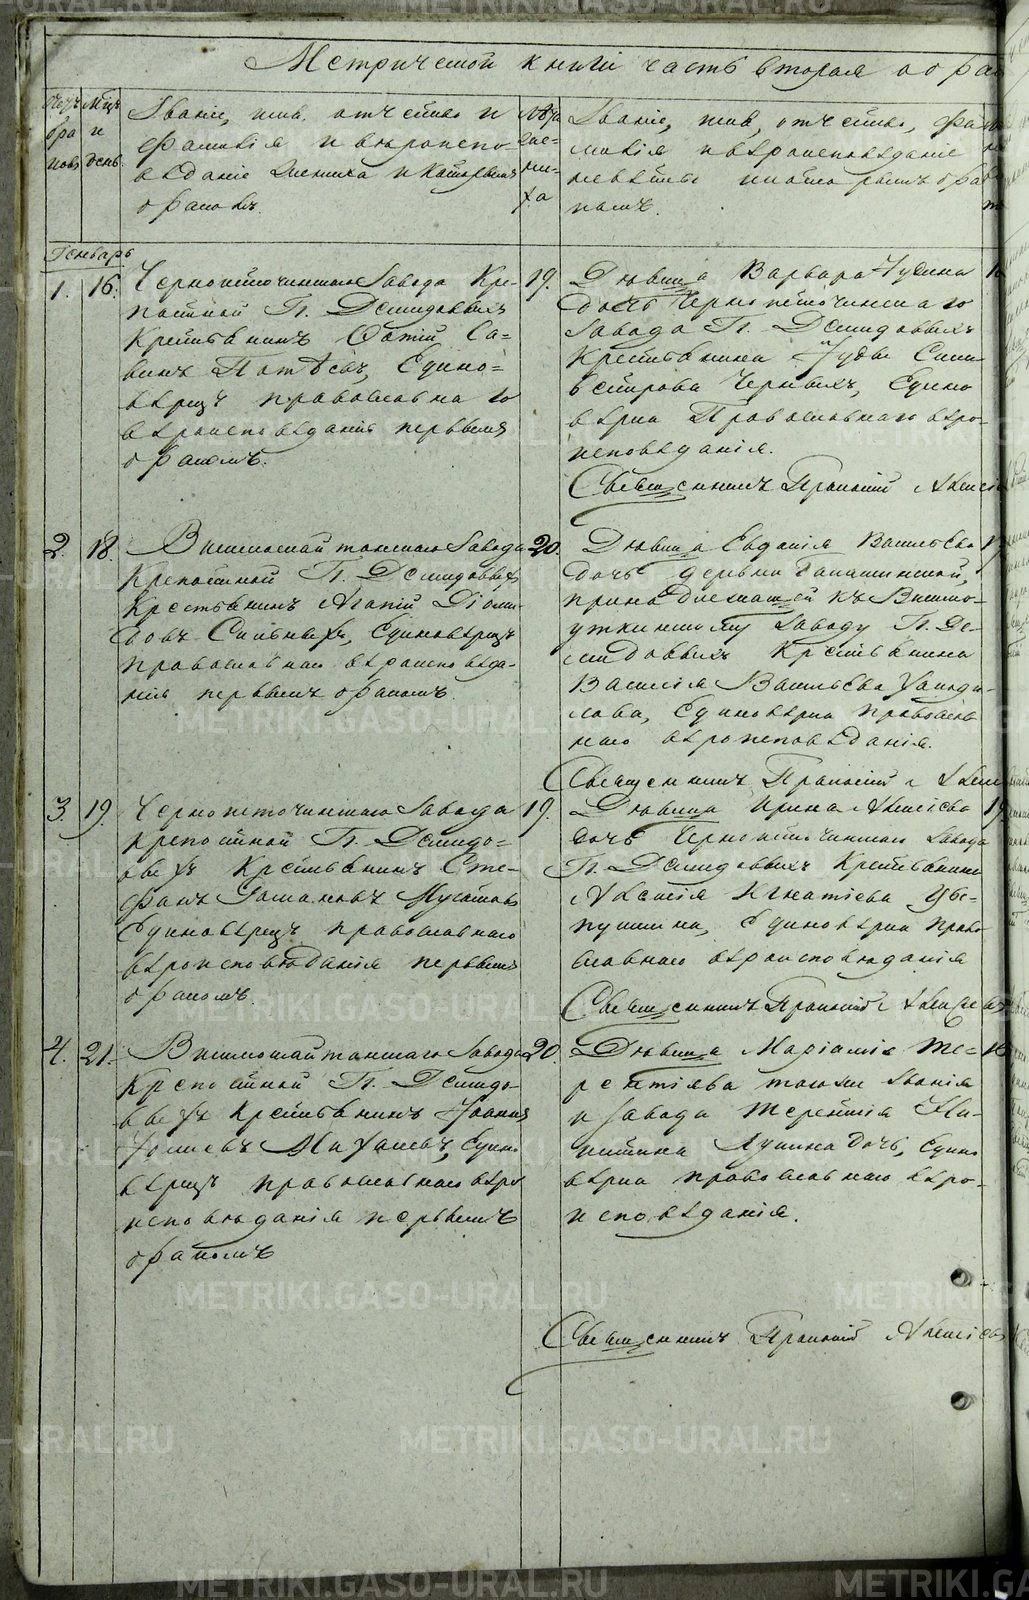 Метрической книги часть вторая о бра
Счетъ бра ковъ
М-цъ и день
Званіе, имя, отчество и
фамилія и вѣроиспо-
вѣданіе жениха и которымъ
бракомъ.
Лѣта жени-ха
Званіе, имя, отчество, фа-
милія и вѣроисповѣданіе
невѣсты и коимъ бра-
комъ.
Генварь
1. 16.
Черноисточинскаго Завода Кре-
постной Гг. Демидовыхъ
Крестьянинъ Фотій Са-
винъ, Едино-
вѣрецъ православнаго
вѣроисповѣданія первымъ
бракомъ.
19.
Дѣвица Варвара Іудина
дочь Черноисточинскаго
Завода Гг. Демидовыхъ
Крестьянина Іуды Сили-
вестрова Черныхъ, Едино
вѣрка Православнаго вѣро-
исповѣданія.
Священникъ Прокопій Алексѣ
2. 18.
Висимошайтанскаго Завода
Крепостной Гг. Демидовыхъ
Крестьянинъ Агапій Діоми-
довъ, Единовѣрецъ
православнаго вѣроисповѣда-
нія первымъ бракомъ.
20.
Дѣвица Евдокія Васильева
дочь деревни Галашинской,
принадлежащей къ Висимо-
уткинскому Заводу Гг. Де-
мидовыхъ Крестьянина
Василія Васильева
Единовѣрка православ
наго вѣроисповѣданія.
Священникъ Прокопій Алекс
3. 19.
Черноисточинскаго Завода
Крепостной Гг. Демидо-
выхъ Крестьянинъ Сте-
фанъ Романовъ Мусатовъ
Единовѣрецъ православнаго
вѣроисповѣданія первымъ
бракомъ.
19.
Дѣвица Ирина Алексѣева
дочь Черноисточинскаго Завода
Гг. Демидовыхъ Крестьянина
Алексія Игнатіева
Единовѣрка право
славнаго вѣроисповѣданія
Священникъ Прокопій Алексѣевъ
4. 21.
Висимошайтанскаго Завода
Крепостной Гг. Демидо-
выхъ Крестьянинъ Іоаннъ
Едино
вѣрецъ православнаго вѣро
исповѣданія первымъ
бракомъ
20.
Дѣвица Маріамія Те-
рентіева такого званія
и Завода Терентія Ни-
китина дочь, Едино
вѣрка православнаго вѣро-
исповѣданія.
Священникъ Прокопій Алексѣевъ
METRIKI.GASO-URAL.RU